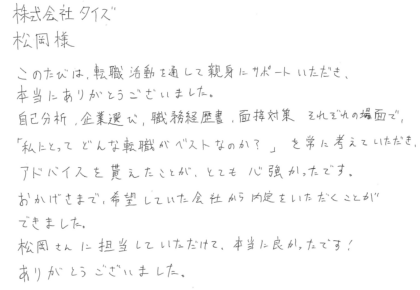 株式会社タイズ
松岡様
このたびは、転職活動を通して親身にサポートいただき、
本当にありがとうございました。
自己分析、企業選び、職務経歴書、面接対策 それぞれの場面で、
「私にとって どんな転職がベストなのか？」を常に考えていただき、
アドバイスを貰えたことが、とても心強かったです。
おかげさまで、希望していた会社から内定をいただくことが
できました。
松岡さんに担当していただけて、本当に良かったです！
ありがとうございました。